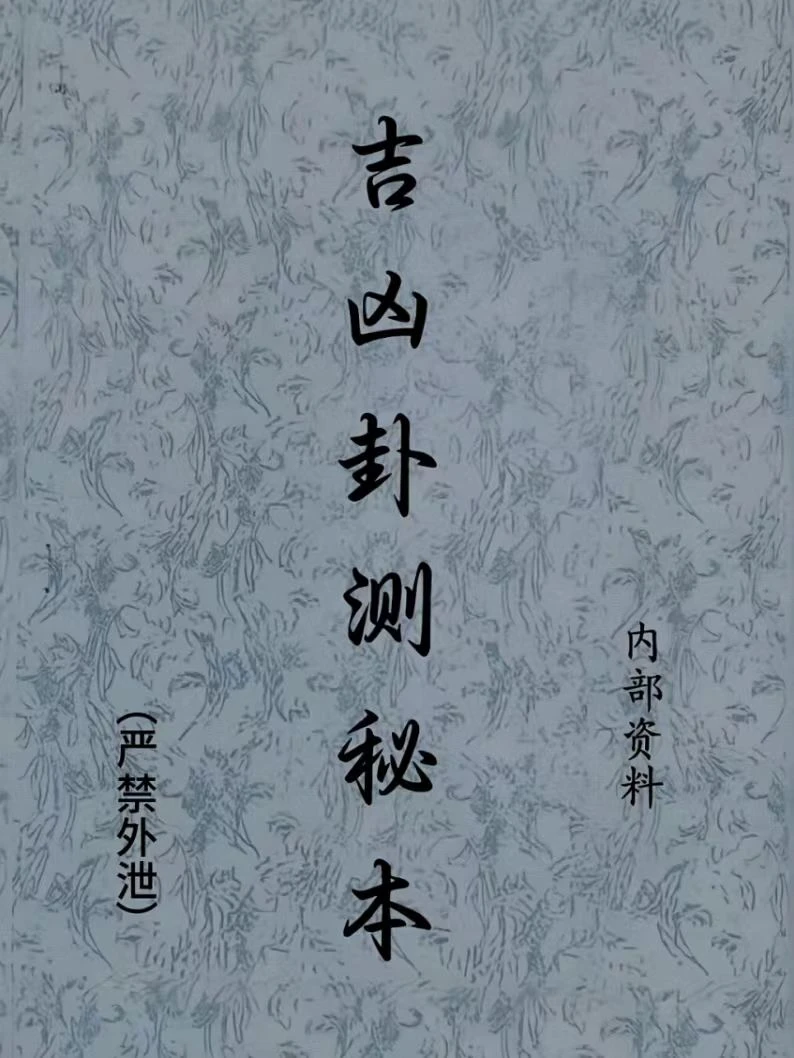 内部资料
吉凶卦测秘本
(严禁外泄)